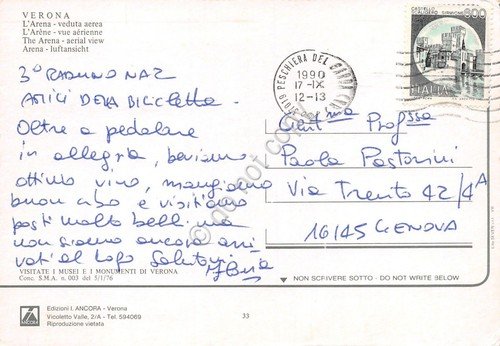 VERONA
L'Arena - veduta aerea
L'Arène - vue aérienne
The Arena - aerial view
Arena - luftansicht
3° RADUNO NAZ
AMICI DELLA BICICLETTA.
Oltre a pedalare
in allegria, beviamo
ottimo vino, mangiamo
buon cibo e visitiamo
posti molto belli ma
non siamo ancora arri
vati al lago Saluti
VISITATE I MUSEI E I MONUMENTI DI VERONA
Conc. S.M.A. n. 003 del 5/1/76
PESCHIERA DEL GARDA
1990
17-IX
12-13
CASTELLO
SCALIGERO SIRMIONE
600
ITALIA
Gent.ma Prof.ssa
Paola Pastorini
Via Trento 42/4A
16145 GENOVA
NON SCRIVERE SOTTO - DO NOT WRITE BELOW
Edizioni I. ANCORA - Verona
Vicoletto Valle, 2/A - Tel. 594069
Riproduzione vietata
ANCORA
33
do not copy